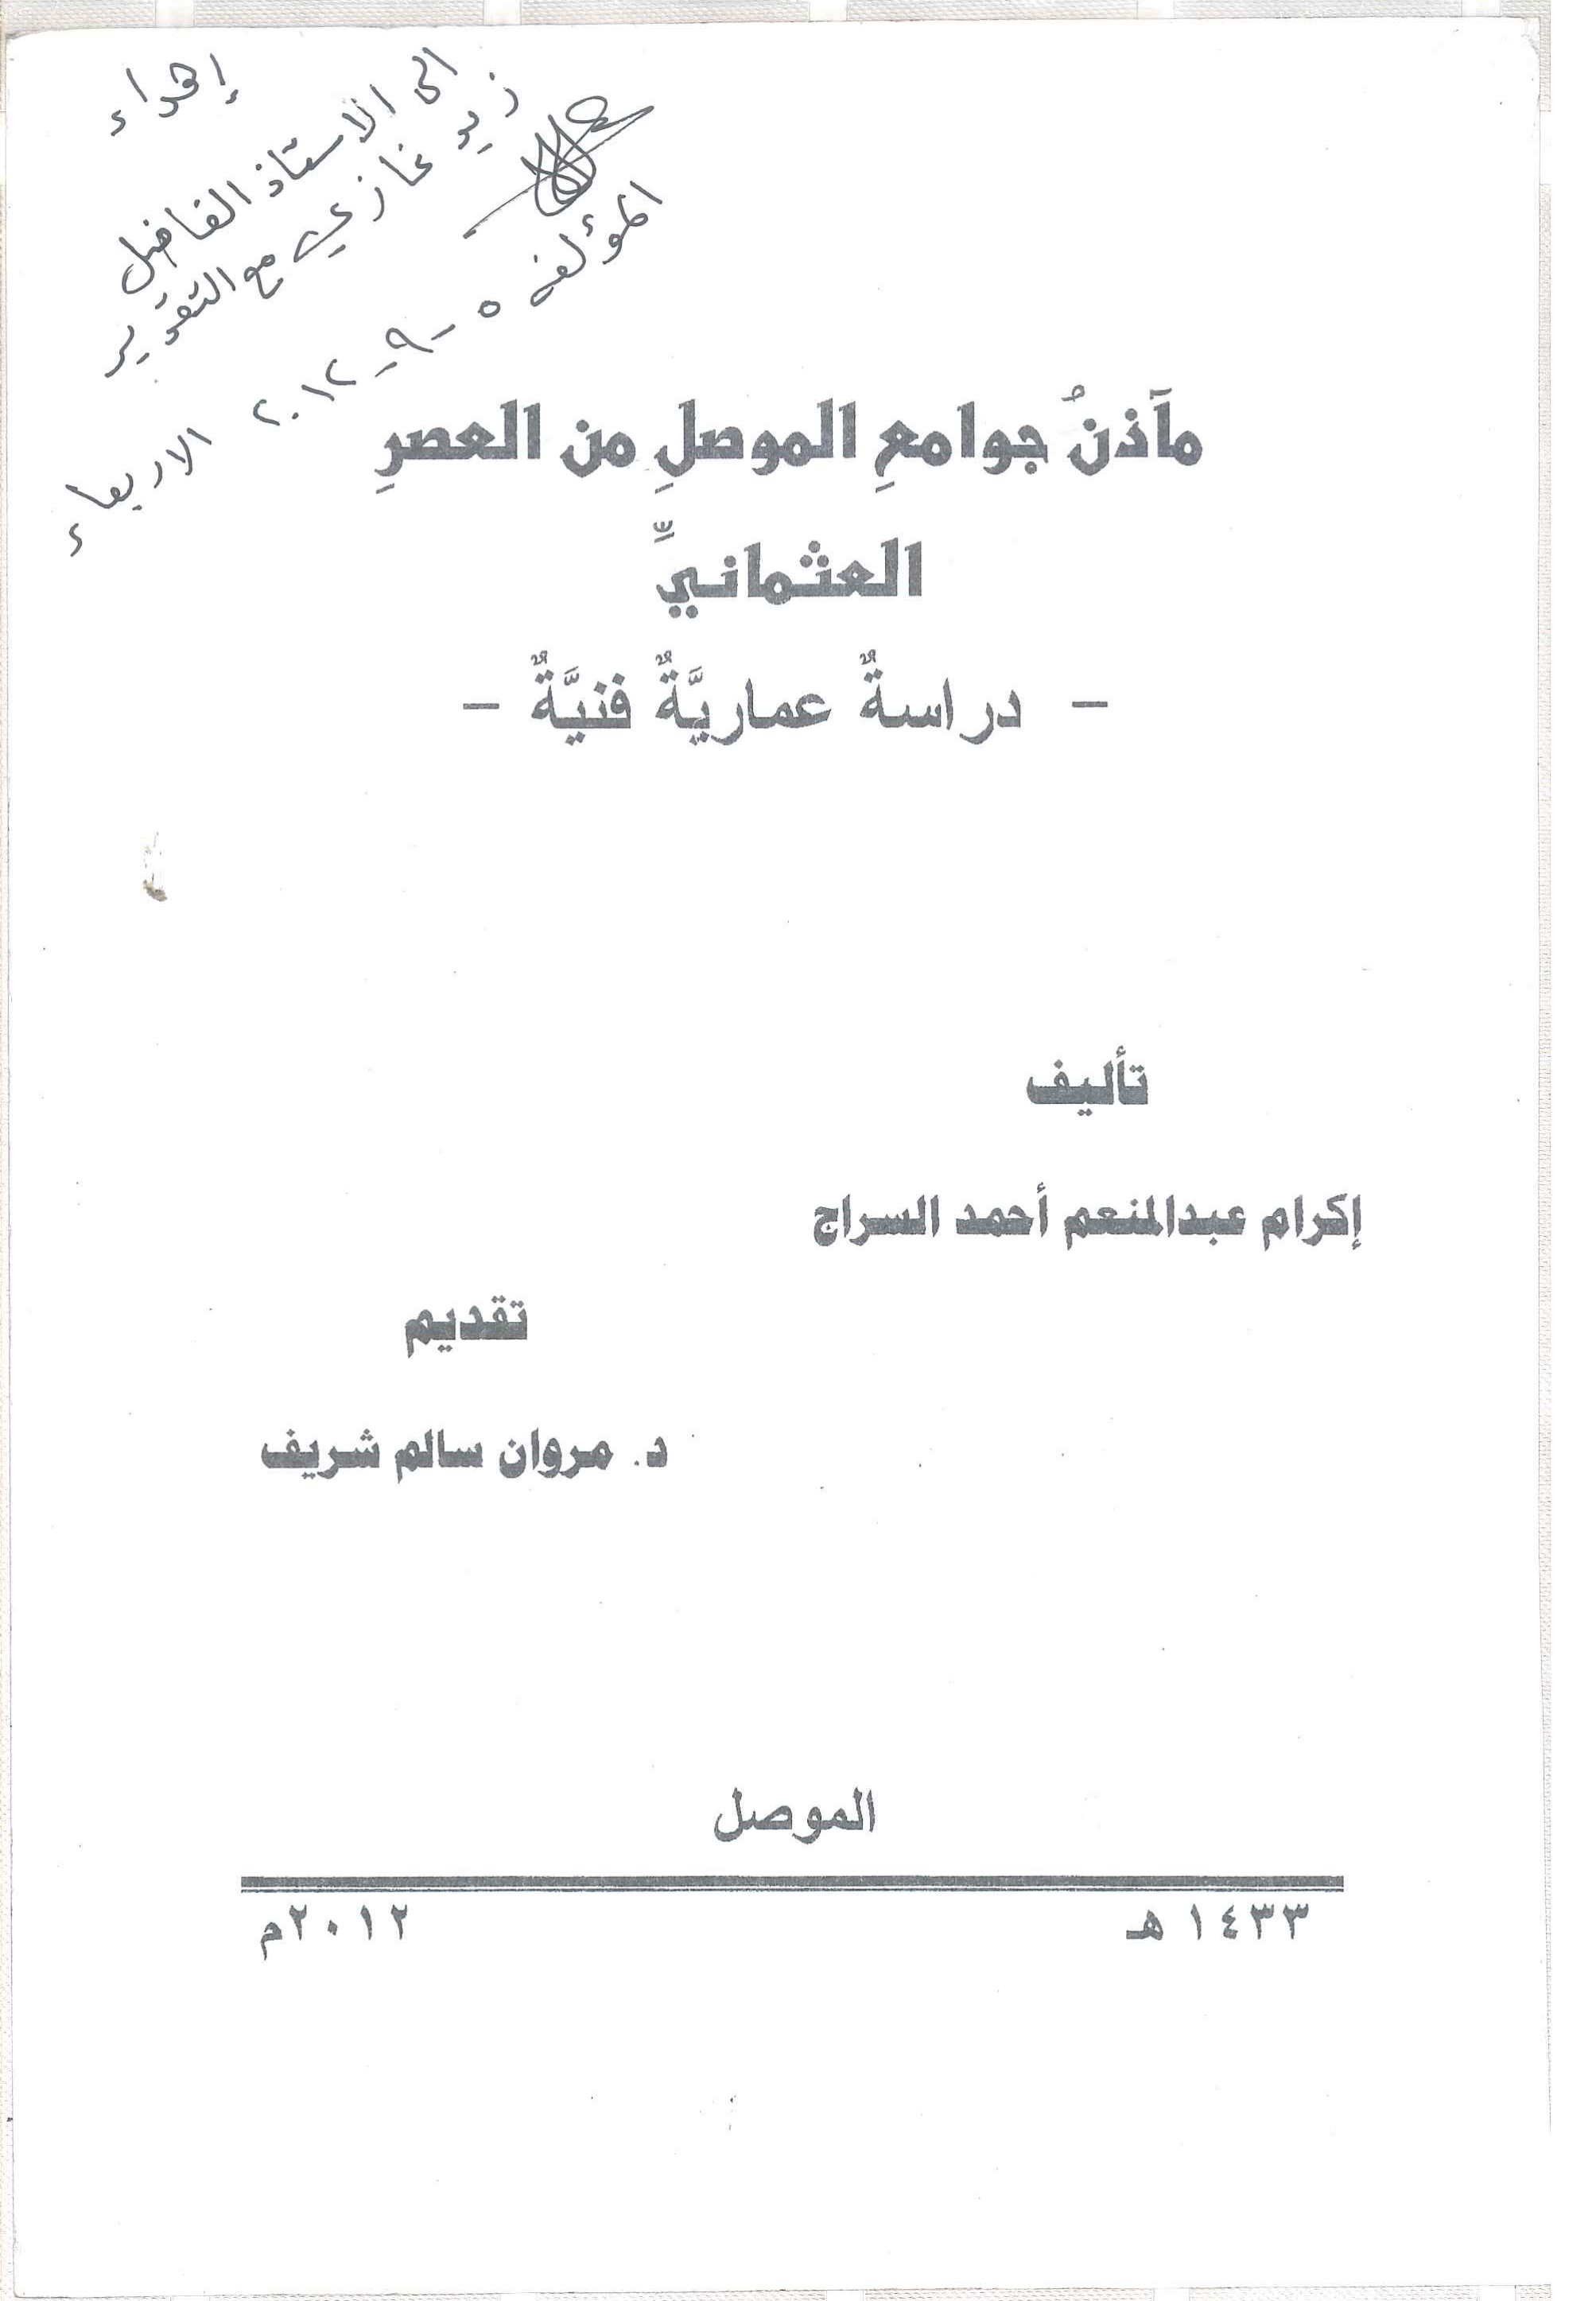 إهداء
الى الاستاذ الفاضل
زيد غازي مع التقدير
المؤلف
٥-٩-٢٠١٢
الاربعاء
مآذنُ جوامعِ الموصلِ من العصرِ
العثمانيِّ
- دراسةٌ عماريَّةٌ فنيَّةٌ -
تأليف
إكرام عبدالمنعم أحمد السراج
تقديم
د. مروان سالم شريف
الموصل
١٤٣٣هـ
٢٠١٢م